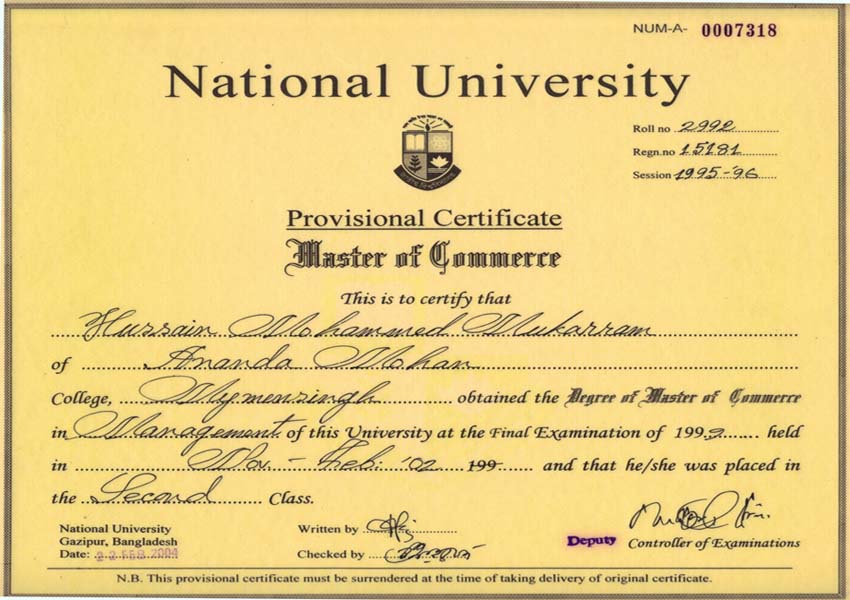 NUM-A- 0007318
National University
Roll no 2992
Regn.no 15181
Session 1995-'96
Provisional Certificate
Master of Commerce
This is to certify that
Hussain Mohammed Mukarram
of Ananda Mohan
College, Mymensingh obtained the Degree of Master of Commerce
in Management of this University at the Final Examination of 1999 held
in - Feb. '02 199 and that he/she was placed in
the Second Class.
National University
Gazipur, Bangladesh
Date: 22 FEB 2004
Written by
Checked by
Deputy Controller of Examinations
N.B. This provisional certificate must be surrendered at the time of taking delivery of original certificate.